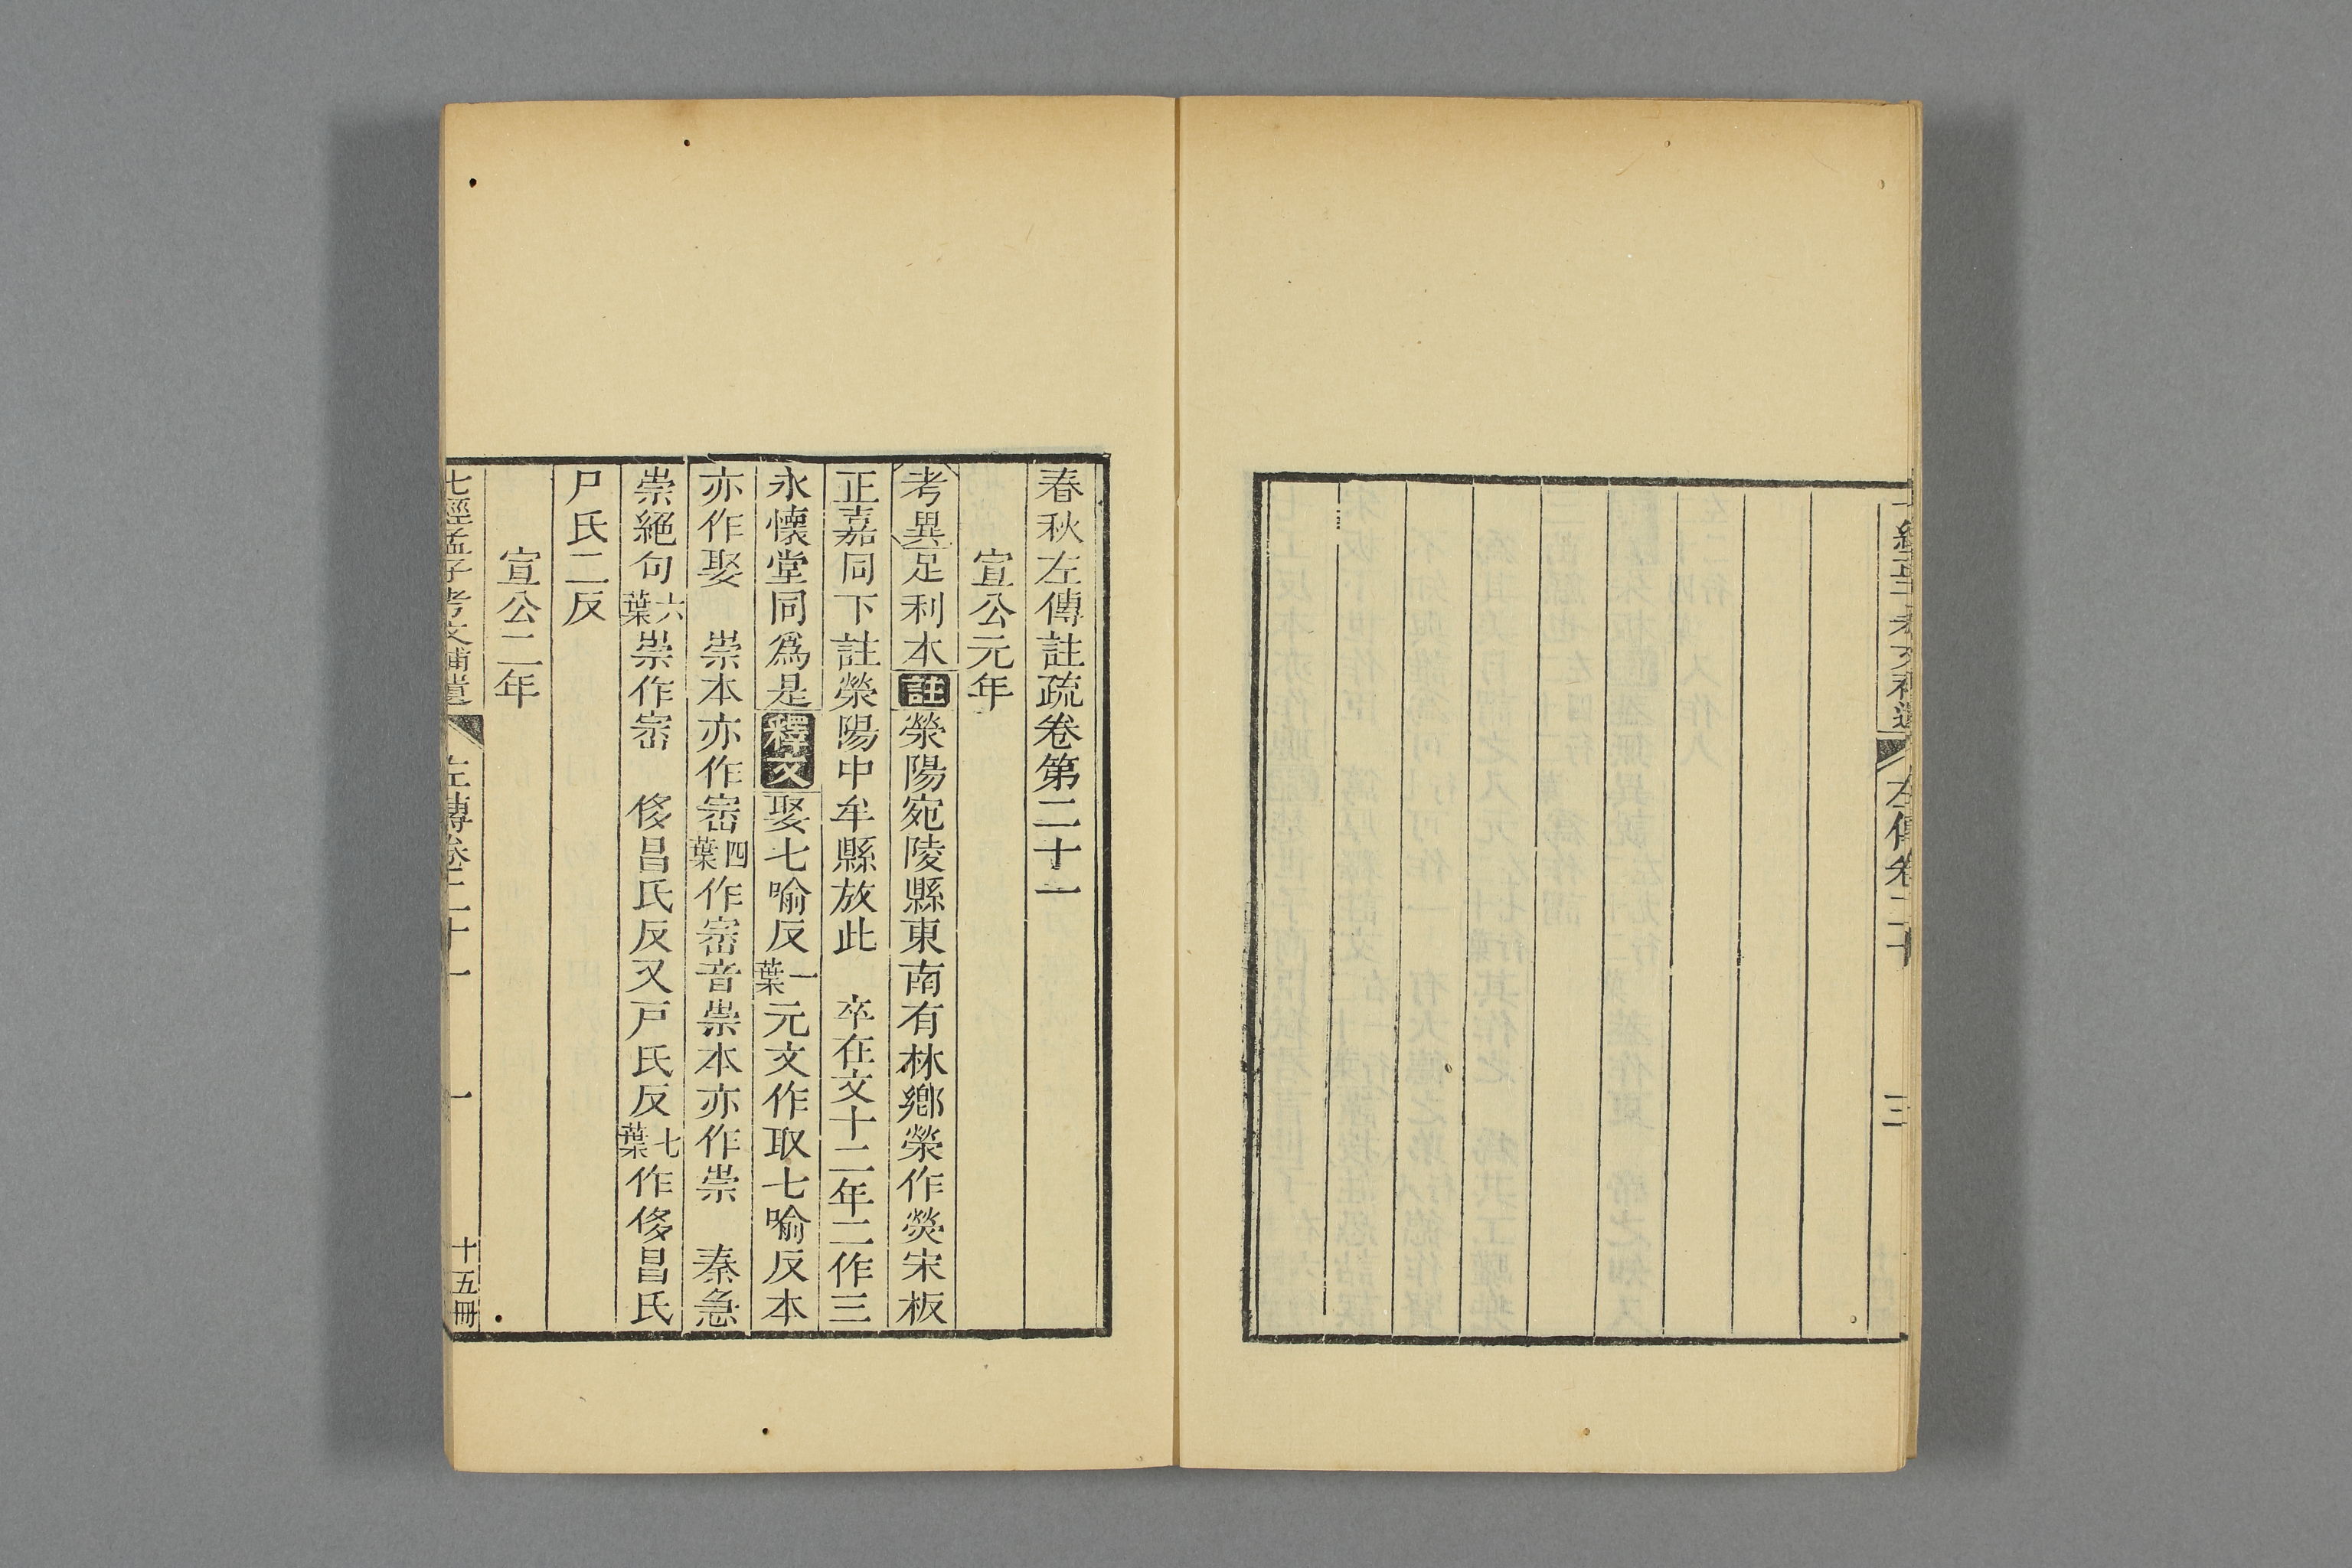 左傳卷二十
三
春秋左傳註疏卷第二十一
宣公元年
考異足利本註滎陽宛陵縣東南有林鄉滎作熒宋板
正嘉同下註滎陽中牟縣放此　卒在文十二年二作三
永懷堂同爲是釋文娶七喻反一葉元文作取七喻反本
亦作娶　崇本亦作崈四葉作崈音崇本亦作崇　秦急
崇絕句六葉崇作崈　侈昌氏反又戸氏反七葉作侈昌氏
尸氏二反
宣公二年
七經孟子考文補遺　左傳卷二十一　一　十五冊